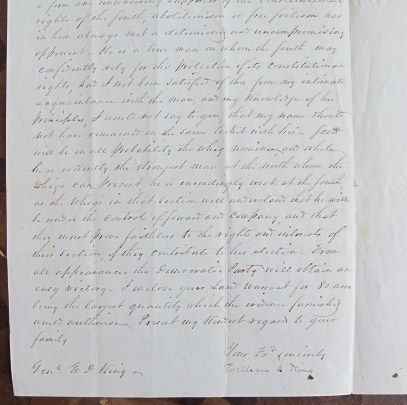 a firm and unwavering supporter of the Constitutional
rights of the South, abolitionism or free soilism has
in him always met a determined and uncompromising
opponent. He is a true man on whom the South may
confidently rely for the protection of its Constitutional
rights, had I not been satisfied of this from my intimate
acquaintance with the man, and my knowledge of his
principles, I would not say to you, that my name should
not have remained on the same ticket with his. Scott
will be in all probability the Whig nominee and while
he is evidently the strongest man at the North whom the
Whigs can present, he is exceedingly weak at the South,
as the Whigs in that section will understand that he will
be under the control of Seward and Company, and that
they must prove faithless to the rights and interests of
their section, if they contribute to his election. From
all appearances the Democratic Party will obtain an
easy victory. I enclose your Land Warrant for 80 acres
being the largest quantity which the evidence furnished
would authorise. Present my kindest regards to your
family
Your Frd. sincerely
William R King
Genl. E D King